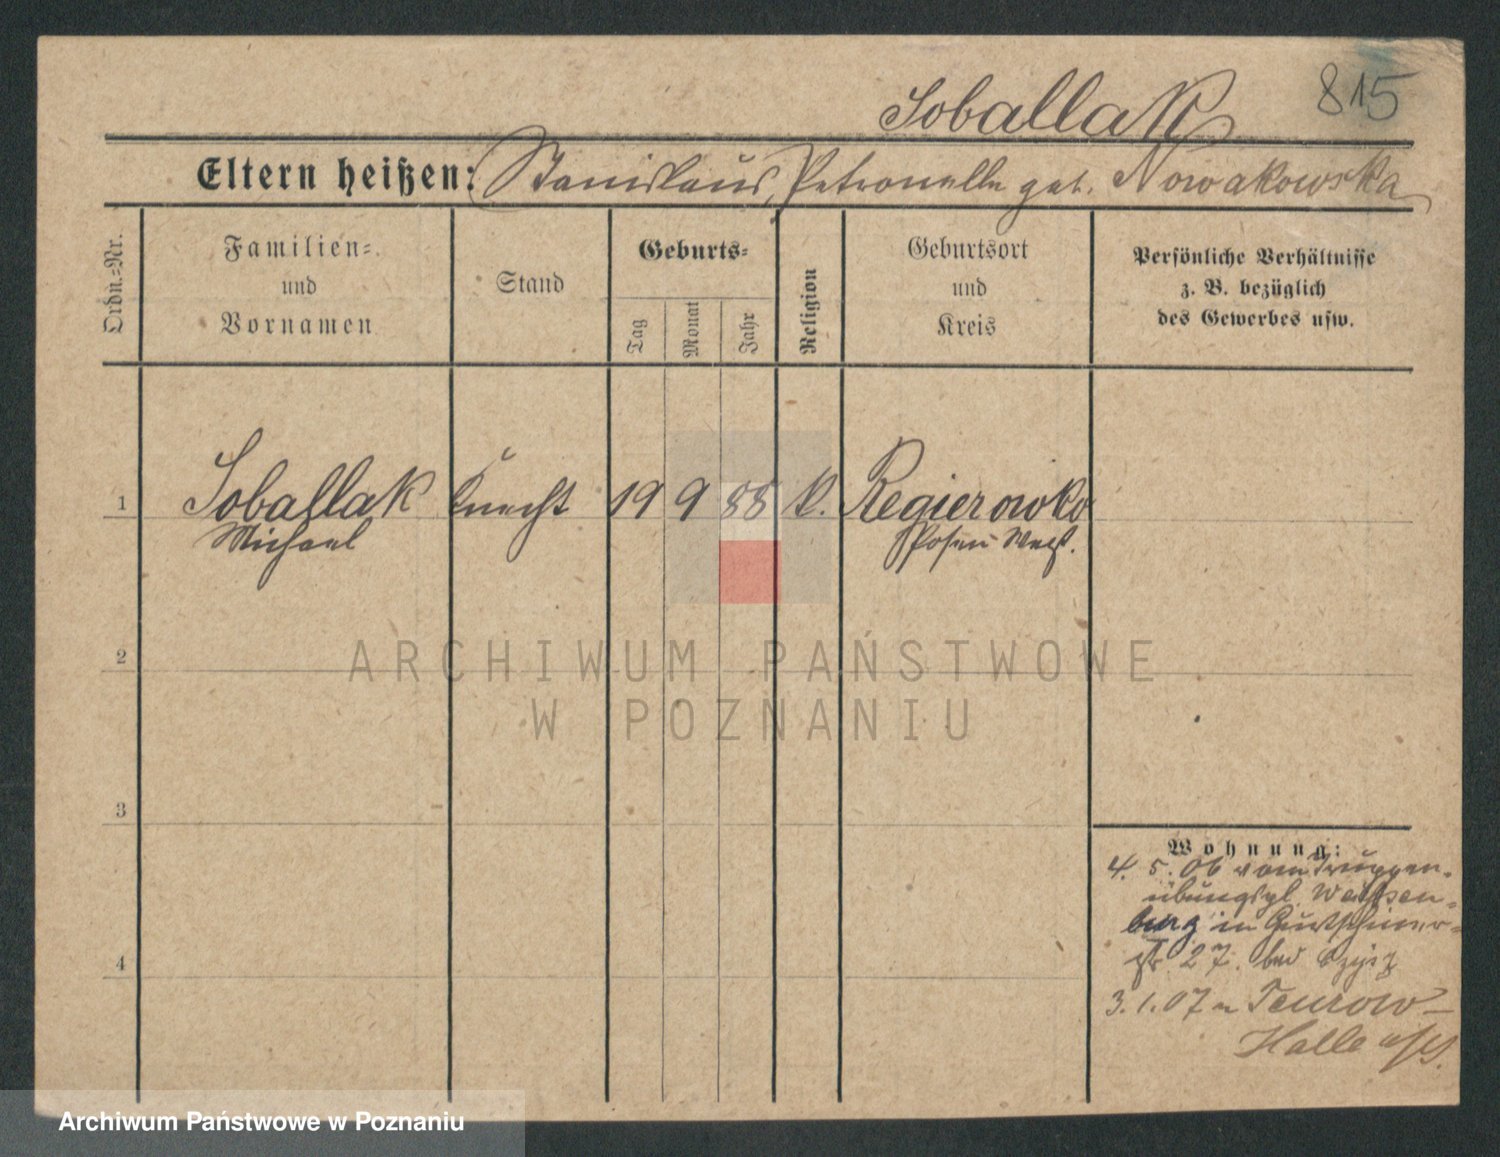 815
Soballak
Eltern heißen: Stanislaus, Petronella geb. Nowakowska
Ordn.=Nr.
Familien=
und
Vornamen
Stand
Geburts=
Tag
Monat
Jahr
Religion
Geburtsort
und
Kreis
Persönliche Verhältnisse
z. B. bezüglich
des Gewerbes usw.
1 Soballak Knecht 19 9 88 k. Regierowko
Michael Posen West.
2
ARCHIWUM PAŃSTWOWE
W POZNANIU
3
Wohnung:
4. 5. 06 vom Truppen-
übungspl. Weissen-
burg in
4
str. 27. bei
3. 1. 07 n
Halle a/S.
Archiwum Państwowe w Poznaniu